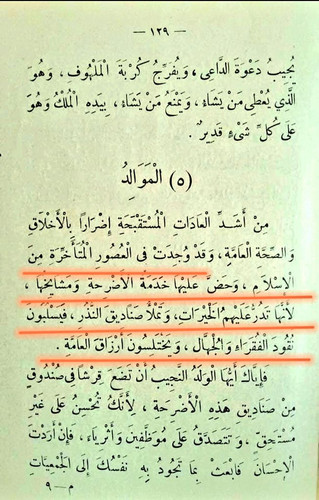 — ١٢٩ —
يُجِيبُ دَعْوَةَ الدَّاعِى ، وَيُفَرِّجُ كُرْبَةَ الْمَلْهُوفِ ، وَهُوَ
الَّذِي يُعْطِى مَنْ يَشَاءُ ، وَيَمْنَعُ مَنْ يَشَاءُ ، بِيَدِهِ الْمُلْكُ وَهُوَ
عَلَى كُلِّ شَىْءٍ قَدِيرٌ .
(٥) الْمَوَالِدُ
مِنْ أَشَدِّ الْعَادَاتِ الْمُسْتَقْبَحَةِ إِضْرَارًا بِالْأَخْلَاقِ
وَالصِّحَّةِ الْعَامَّةِ ، وَقَدْ وُجِدَتْ فِى الْعُصُورِ الْمُتَأَخِّرَةِ مِنَ
الْإِسْلَامِ ، وَحَضَّ عَلَيْهَا خَدَمَةُ الْأَضْرِحَةِ وَمَشَايِخُهَا ،
لِأَنَّهَا تَدُرُّ عَلَيْهِمُ الْخَيْرَاتِ ، وَتَمْلَأُ صَنَادِيقَ النَّذْرِ ، فَيَسْلُبُونَ
نُقُودَ الْفُقَرَاءِ وَالْجُهَّالِ ، وَيَخْتَلِسُونَ أَرْزَاقَ الْعَامَّةِ .
فَإِيَّاكَ أَيُّهَا الْوَلَدُ النَّجِيبُ أَنْ تَضَعَ قِرْشًا فِى صُنْدُوقٍ
مِنْ صَنَادِيقِ هَذِهِ الْأَضْرِحَةِ ، لِأَنَّكَ تُحْسِنُ عَلَى غَيْرِ
مُسْتَحِقٍّ ، وَتَتَصَدَّقُ عَلَى مُوَظَّفِينَ وَأَثْرِيَاءَ ، فَإِنْ أَرَدْتَ
الْإِحْسَانَ فَابْعَثْ بِمَا تَجُودُ بِهِ نَفْسُكَ إِلَى الْجَمْعِيَّاتِ
م — ٩